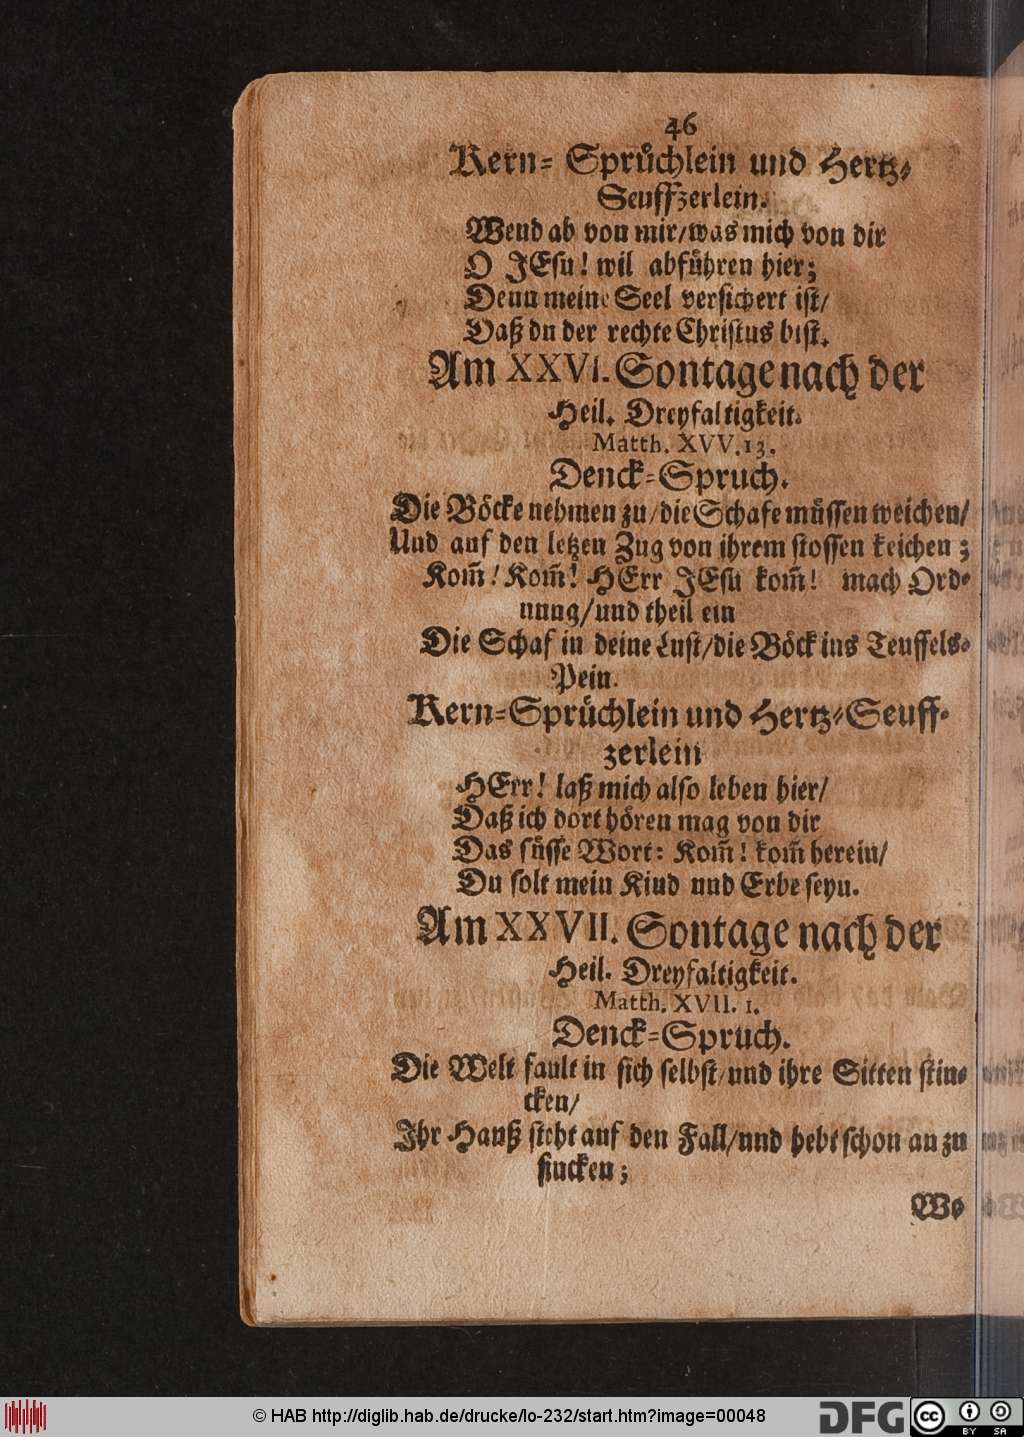 46
Kern- Sprüchlein und Hertz-
Seuffzerlein.
Wend ab von mir/was mich von dir
O JEsu! wil abführen hier;
Denn meine Seel versichert ist/
Daß du der rechte Christus bist.
Am XXVI. Sontage nach der
Heil. Dreyfaltigkeit.
Matth. XVV.13.
Denck-Spruch.
Die Böcke nehmen zu/die Schafe müssen weichen/
Und auf den letzen Zug von ihrem stossen keichen;
Kom̃! Kom̃! HErr JEsu kom̃! mach Ord-
nung/und theil ein
Die Schaf in deine Lust/die Böck ins Teuffels-
Pein.
Kern-Sprüchlein und Hertz-Seuff-
zerlein
HErr! laß mich also leben hier/
Daß ich dort hören mag von dir
Das süsse Wort: Kom̃! kom̃ herein/
Du solt mein Kind und Erbe seyn.
Am XXVII. Sontage nach der
Heil. Dreyfaltigkeit.
Matth. XVII. 1.
Denck-Spruch.
Die Welt fault in sich selbst/und ihre Sitten stin-
cken/
Ihr Hauß steht auf den Fall/und hebt schon an zu
sincken;
Wo
© HAB http://diglib.hab.de/drucke/lo-232/start.htm?image=00048
DFG
cc BY SA